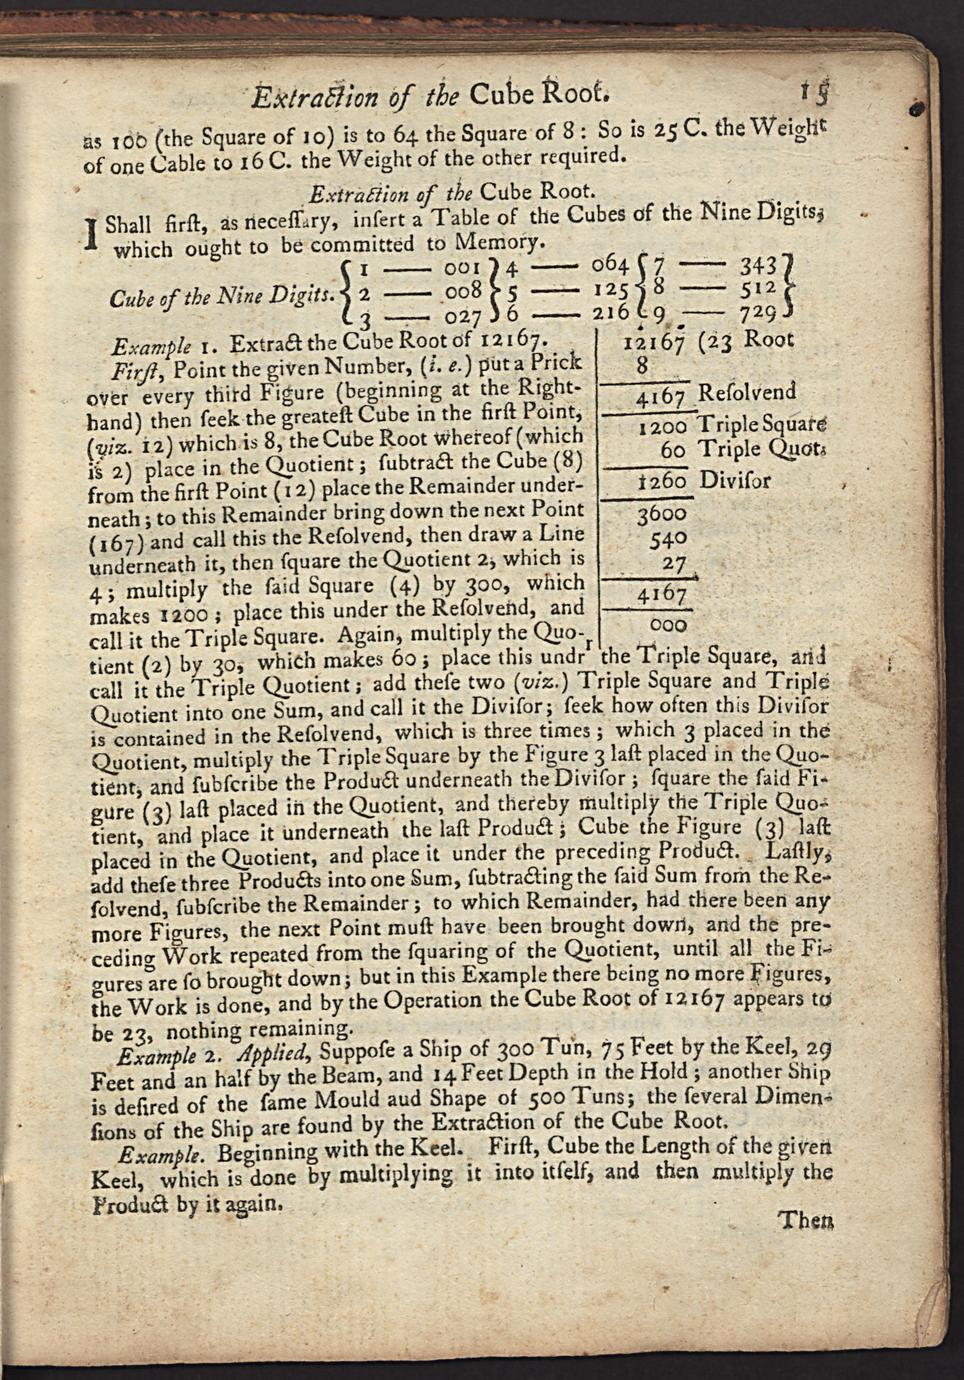 Extraction of the Cube Root. 15
as 100 (the Square of 10) is to 64 the Square of 8 : So is 25 C. the Weight
of one Cable to 16 C. the Weight of the other required.
Extraction of the Cube Root.
I Shall firſt, as neceſſary, inſert a Table of the Cubes of the Nine Digits,
which ought to be committed to Memory.
1 — 001 } 4 — 064 { 7 — 343 }
Cube of the Nine Digits. { 2 — 008 } 5 — 125 { 8 — 512 }
3 — 027 } 6 — 216 { 9 — 729 }
Example 1. Extract the Cube Root of 12167.
Firſt, Point the given Number, (i. e.) put a Prick
over every third Figure (beginning at the Right-
hand) then ſeek the greateſt Cube in the firſt Point,
(viz. 12) which is 8, the Cube Root whereof (which
is 2) place in the Quotient ; ſubtract the Cube (8)
from the firſt Point (12) place the Remainder under-
neath ; to this Remainder bring down the next Point
(167) and call this the Reſolvend, then draw a Line
underneath it, then ſquare the Quotient 2, which is
4 ; multiply the ſaid Square (4) by 300, which
makes 1200 ; place this under the Reſolvend, and
call it the Triple Square. Again, multiply the Quo-
12167 (23 Root
8
4167 Reſolvend
1200 Triple Square
60 Triple Quot.
1260 Diviſor
3600
540
27
4167
000
tient (2) by 30, which makes 60 ; place this undr the Triple Square, and
call it the Triple Quotient ; add theſe two (viz.) Triple Square and Triple
Quotient into one Sum, and call it the Diviſor ; ſeek how often this Diviſor
is contained in the Reſolvend, which is three times ; which 3 placed in the
Quotient, multiply the Triple Square by the Figure 3 laſt placed in the Quo-
tient, and ſubſcribe the Product underneath the Diviſor ; ſquare the ſaid Fi-
gure (3) laſt placed in the Quotient, and thereby multiply the Triple Quo-
tient, and place it underneath the laſt Product ; Cube the Figure (3) laſt
placed in the Quotient, and place it under the preceding Product. Laſtly,
add theſe three Products into one Sum, ſubtracting the ſaid Sum from the Re-
ſolvend, ſubſcribe the Remainder ; to which Remainder, had there been any
more Figures, the next Point muſt have been brought down, and the pre-
ceding Work repeated from the ſquaring of the Quotient, until all the Fi-
gures are ſo brought down ; but in this Example there being no more Figures,
the Work is done, and by the Operation the Cube Root of 12167 appears to
be 23, nothing remaining.
Example 2. Applied, Suppoſe a Ship of 300 Tun, 75 Feet by the Keel, 29
Feet and an half by the Beam, and 14 Feet Depth in the Hold ; another Ship
is deſired of the ſame Mould aud Shape of 500 Tuns ; the ſeveral Dimen-
ſions of the Ship are found by the Extraction of the Cube Root.
Example. Beginning with the Keel. Firſt, Cube the Length of the given
Keel, which is done by multiplying it into itſelf, and then multiply the
Product by it again.
Then